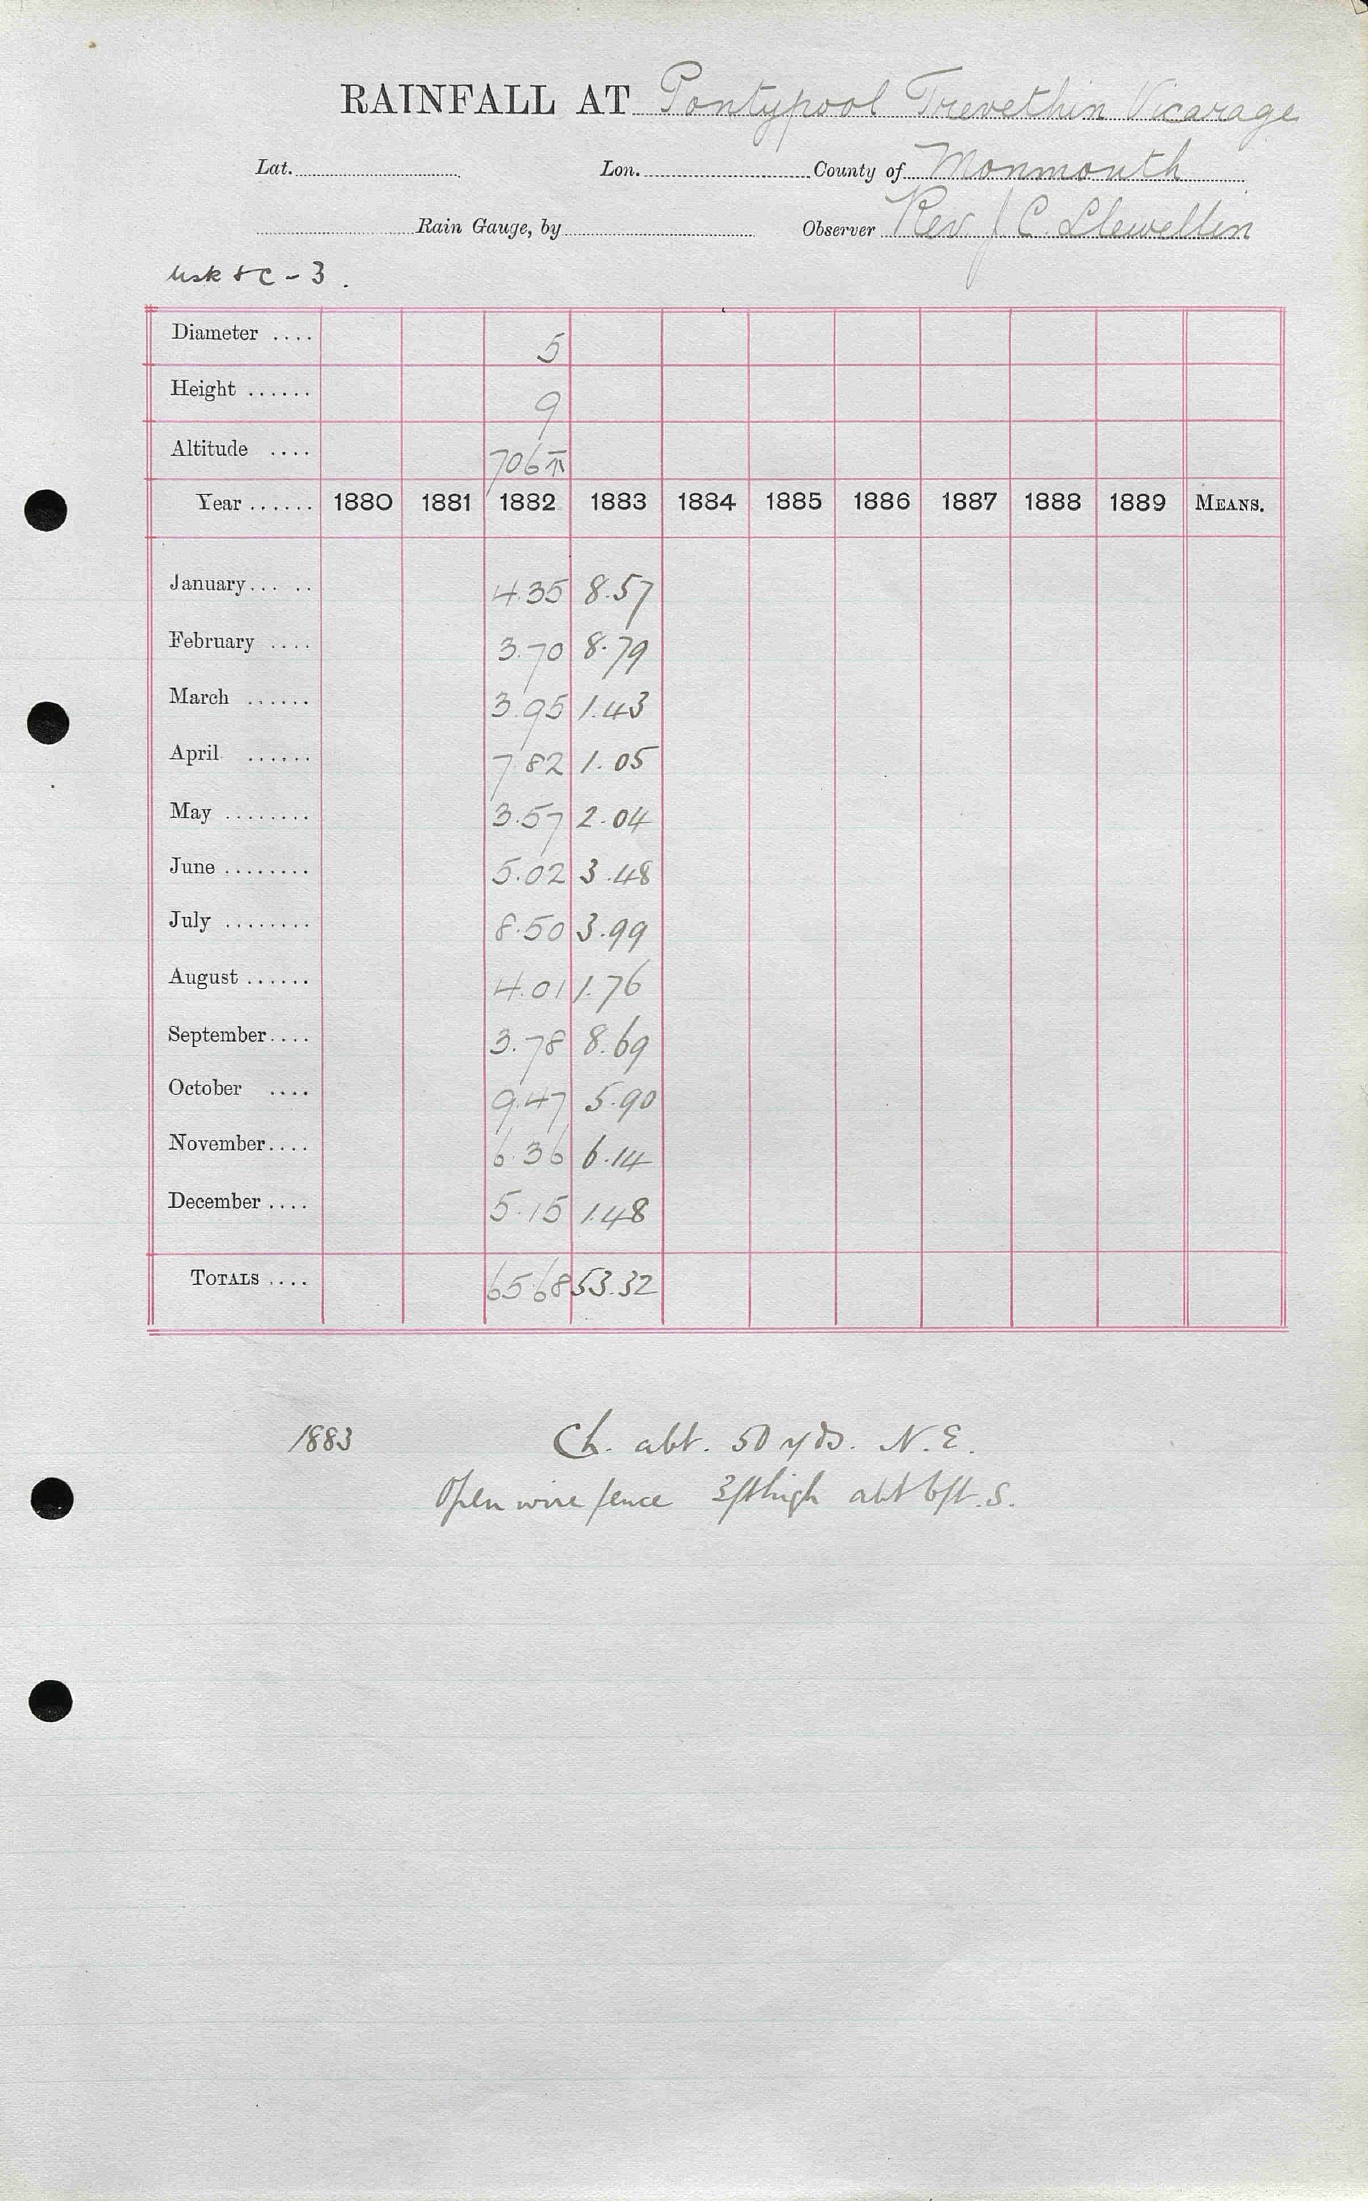 RAINFALL AT Pontypool Trevethin Vicarage
Lat. Lon. County of Monmouth
Rain Gauge, by Observer Rev. J C. Llewellin
Usk &c - 3.
Diameter .... 5
Height ...... 9
Altitude .... 706 ⊼
Year ...... 1880 1881 1882 1883 1884 1885 1886 1887 1888 1889 MEANS.
January... .. 4.35 8.57
February .... 3.70 8.79
March ...... 3.95 1.43
April ...... 7.82 1.05
May ........ 3.57 2.04
June ........ 5.02 3.48
July ........ 8.50 3.99
August ...... 4.01 1.76
September.... 3.78 8.69
October .... 9.47 5.90
November.... 6.36 6.14
December .... 5.15 1.48
TOTALS .... 65.68 53.32
1883 Ch. abt. 50 yds. N.E.
Open wire fence 3ft high abt 6ft. S.